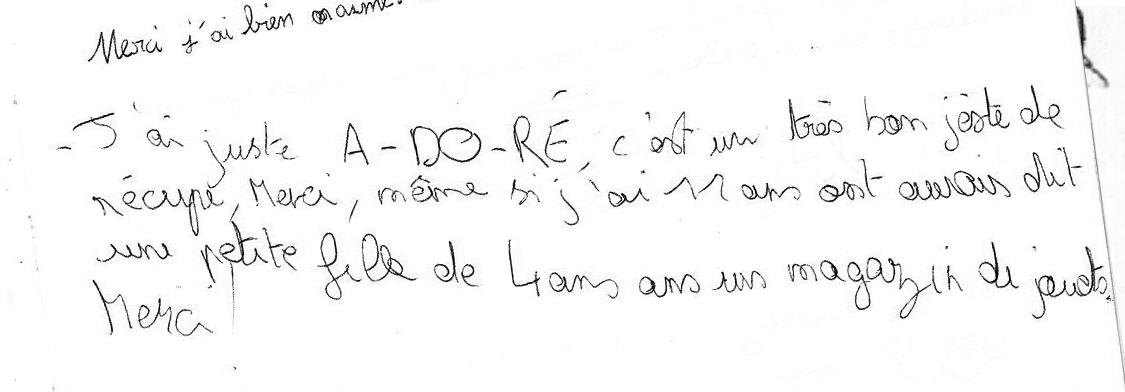 Merci j'ai bien
- J'ai juste A-DO-RÉ, c'est un très bon jèste de
récupe, Merci, même si j'ai 11 ans ont aurais dit
une petite fille de 4 ans ans un magazin de jouets.
Merci